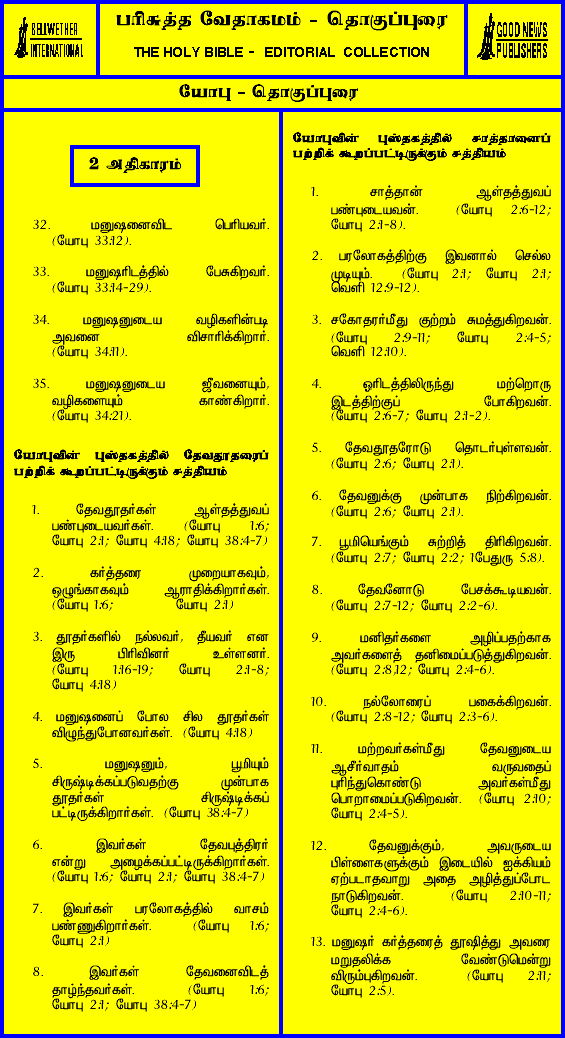 BELLWETHER
INTERNATIONAL
பரிசுத்த வேதாகமம் - தொகுப்புரை
THE HOLY BIBLE - EDITORIAL COLLECTION
GOOD NEWS
PUBLISHERS
யோபு - தொகுப்புரை
2 அதிகாரம்
32. மனுஷனைவிட பெரியவர்.
(யோபு 33:12).
33. மனுஷரிடத்தில் பேசுகிறவர்.
(யோபு 33:14-29).
34. மனுஷனுடைய வழிகளின்படி
அவனை விசாரிக்கிறார்.
(யோபு 34:11).
35. மனுஷனுடைய ஜீவனையும்,
வழிகளையும் காண்கிறார்.
(யோபு 34:21).
யோபுவின் புஸ்தகத்தில் தேவதூதரைப்
பற்றிக் கூறப்பட்டிருக்கும் சத்தியம்
1. தேவதூதர்கள் ஆள்தத்துவப்
பண்புடையவர்கள். (யோபு 1:6;
யோபு 2:1; யோபு 4:18; யோபு 38:4-7)
2. கர்த்தரை முறையாகவும்,
ஒழுங்காகவும் ஆராதிக்கிறார்கள்.
(யோபு 1:6; யோபு 2:1)
3. தூதர்களில் நல்லவர், தீயவர் என
இரு பிரிவினர் உள்ளனர்.
(யோபு 1:16-19; யோபு 2:1-8;
யோபு 4:18)
4. மனுஷனைப் போல சில தூதர்கள்
விழுந்துபோனவர்கள். (யோபு 4:18)
5. மனுஷனும், பூமியும்
சிருஷ்டிக்கப்படுவதற்கு முன்பாக
தூதர்கள் சிருஷ்டிக்கப்
பட்டிருக்கிறார்கள். (யோபு 38:4-7)
6. இவர்கள் தேவபுத்திரர்
என்று அழைக்கப்பட்டிருக்கிறார்கள்.
(யோபு 1:6; யோபு 2:1; யோபு 38:4-7)
7. இவர்கள் பரலோகத்தில் வாசம்
பண்ணுகிறார்கள். (யோபு 1:6;
யோபு 2:1)
8. இவர்கள் தேவனைவிடத்
தாழ்ந்தவர்கள். (யோபு 1:6;
யோபு 2:1; யோபு 38:4-7)
யோபுவின் புஸ்தகத்தில் சாத்தானைப்
பற்றிக் கூறப்பட்டிருக்கும் சத்தியம்
1. சாத்தான் ஆள்தத்துவப்
பண்புடையவன். (யோபு 2:6-12;
யோபு 2:1-8).
2. பரலோகத்திற்கு இவனால் செல்ல
முடியும். (யோபு 2:1; யோபு 2:1;
வெளி 12:9-12).
3. சகோதரர்மீது குற்றம் சுமத்துகிறவன்.
(யோபு 2:9-11; யோபு 2:4-5;
வெளி 12:10).
4. ஒரிடத்திலிருந்து மற்றொரு
இடத்திற்குப் போகிறவன்.
(யோபு 2:6-7; யோபு 2:1-2).
5. தேவதூதரோடு தொடர்புள்ளவன்.
(யோபு 2:6; யோபு 2:1).
6. தேவனுக்கு முன்பாக நிற்கிறவன்.
(யோபு 2:6; யோபு 2:1).
7. பூமியெங்கும் சுற்றித் திரிகிறவன்.
(யோபு 2:7; யோபு 2:2; 1பேதுரு 5:8).
8. தேவனோடு பேசக்கூடியவன்.
(யோபு 2:7-12; யோபு 2:2-6).
9. மனிதர்களை அழிப்பதற்காக
அவர்களைத் தனிமைப்படுத்துகிறவன்.
(யோபு 2:8,12; யோபு 2:4-6).
10. நல்லோரைப் பகைக்கிறவன்.
(யோபு 2:8-12; யோபு 2:3-6).
11. மற்றவர்கள்மீது தேவனுடைய
ஆசீர்வாதம் வருவதைப்
புரிந்துகொண்டு அவர்கள்மீது
பொறாமைப்படுகிறவன். (யோபு 2:10;
யோபு 2:4-5).
12. தேவனுக்கும், அவருடைய
பிள்ளைகளுக்கும் இடையில் ஐக்கியம்
ஏற்படாதவாறு அதை அழித்துப்போட
நாடுகிறவன். (யோபு 2:10-11;
யோபு 2:4-6).
13. மனுஷர் கர்த்தரைத் தூஷித்து அவரை
மறுதலிக்க வேண்டுமென்று
விரும்புகிறவன். (யோபு 2:11;
யோபு 2:5).